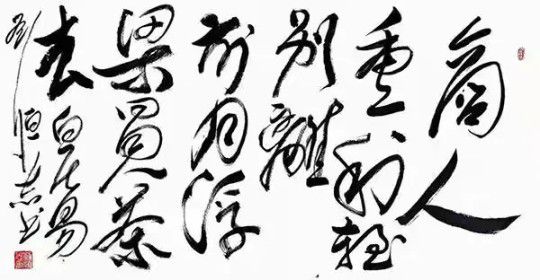 商人
重利轻
别離
前月浮
梁買茶
去 白居易
刘恒志书